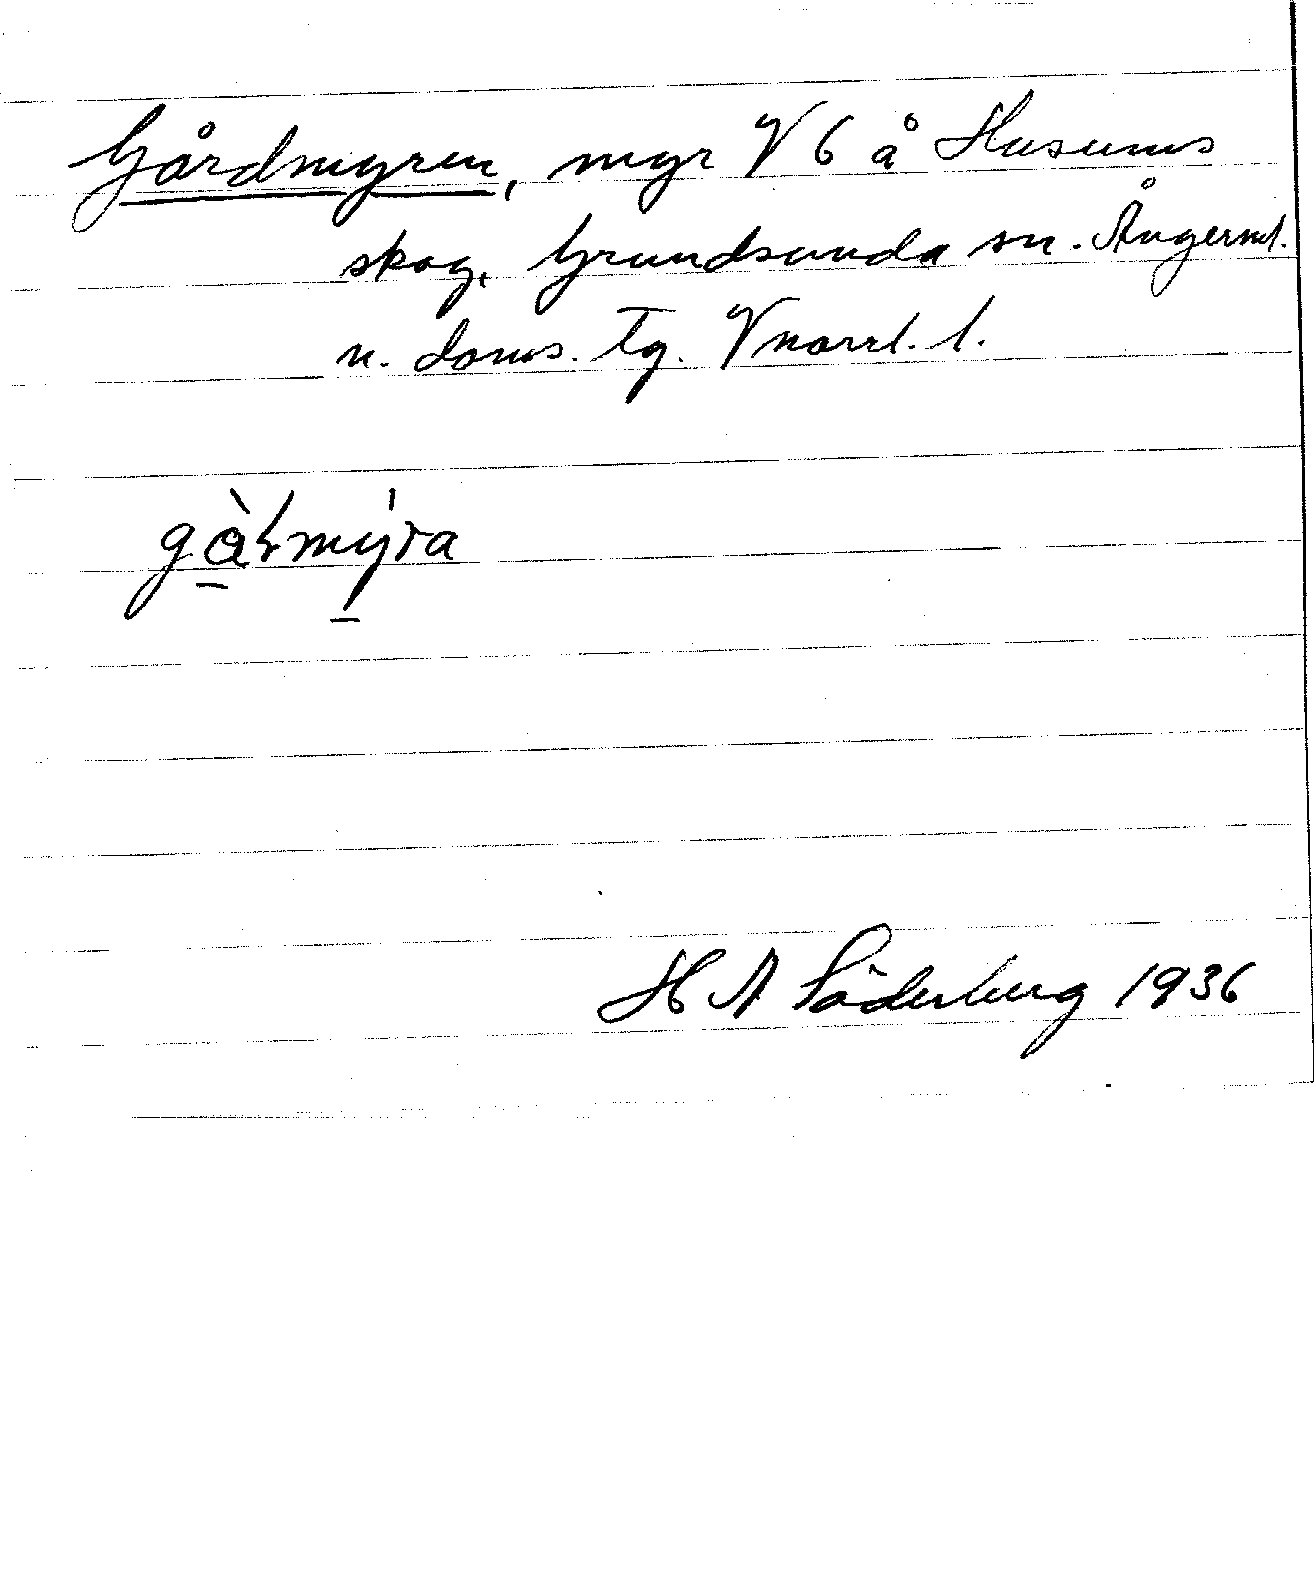 Gårdmyren, myr V 6 å Husums
skog, Grundsunda sn. Ångerml.
n. doms. Tg. Vnorrl. l.
gàɫmýra
H A Söderberg 1936